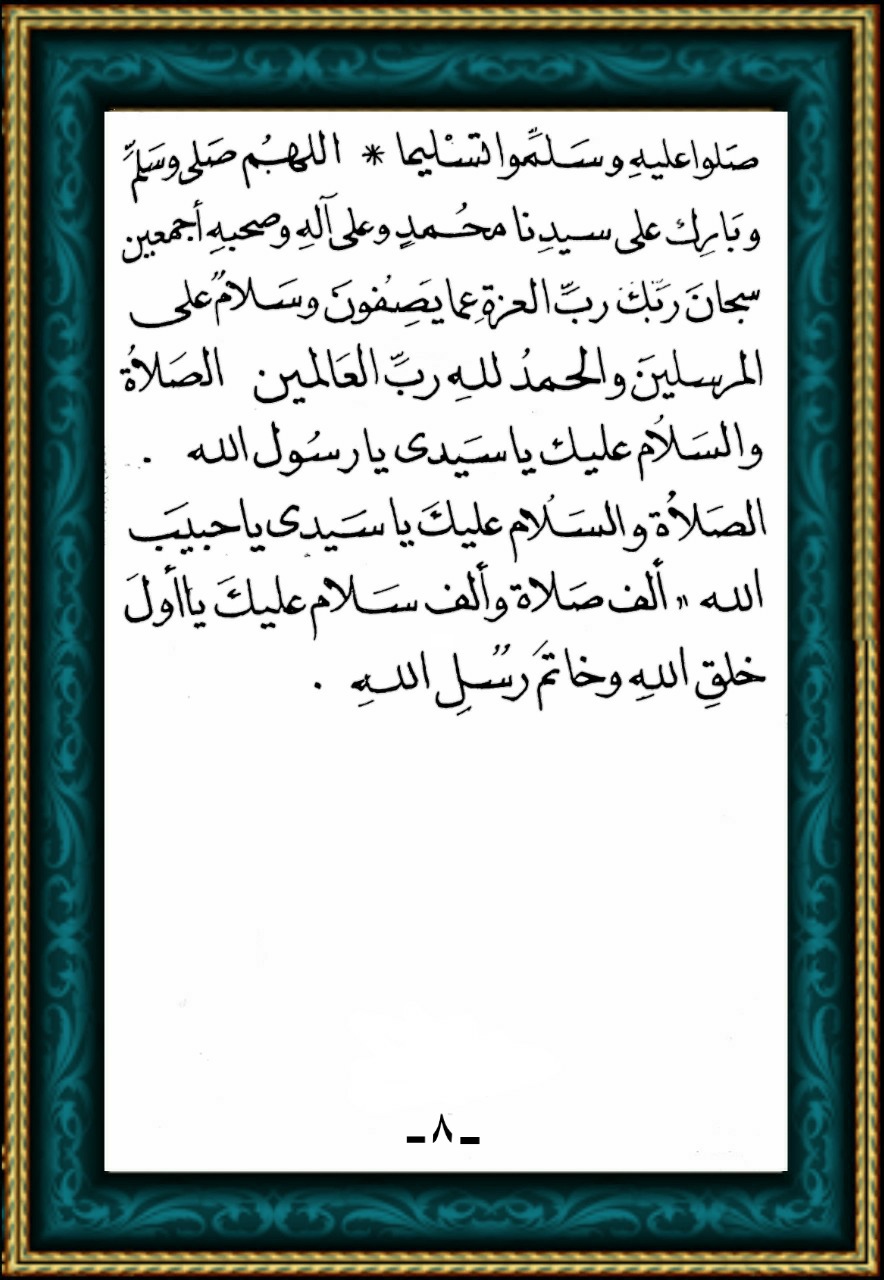 صَلوا عليهِ وسَلِّموا تسْليما * اللهُم صَلى وسَلِّم
وبَارِك على سيدِنا محُمدٍ وعلى آلهِ وصحبهِ أجمعين
سبحانَ رَبّكَ ربِّ العزةِ عما يَصِفُونَ وسَلامٌ على
المرسلينَ والحمدُ للهِ ربِّ العَالمين الصَلاةُ
والسَلاُم عليك يا سيَدى يا رسُول الله .
الصَلاُة والسَلاُم عليكَ يا سيَدى يا حبيَب
الله ،، ألف صَلاة وألف سَلام عليكَ يا أولَ
خلقِ اللهِ وخاتمَ رُسُلِ اللهِ .
ـ ٨ ـ